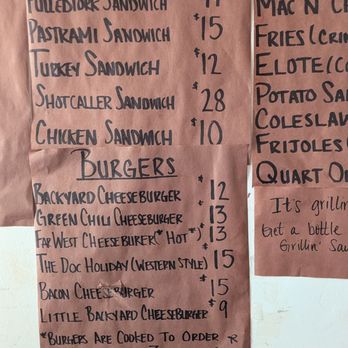 Pulled Pork Sandwich
Pastrami Sandwich $15
Turkey Sandwich $12
Shotcaller Sandwich $28
Chicken Sandwich $10
Burgers
Backyard Cheeseburger $12
Green Chili Cheeseburger $13
Far West Cheeseburer (*Hot*) $13
The Doc Holiday (Western Style) $15
Bacon Cheeseburger $15
Little Backyard Cheeseburger $9
*Burgers are cooked to order
Mac N C
Fries (Cri
Elote (Co
Potato Sa
Coleslaw
Frijoles (
Quart O
It's grillin
Get a bottle
Grillin' Sau